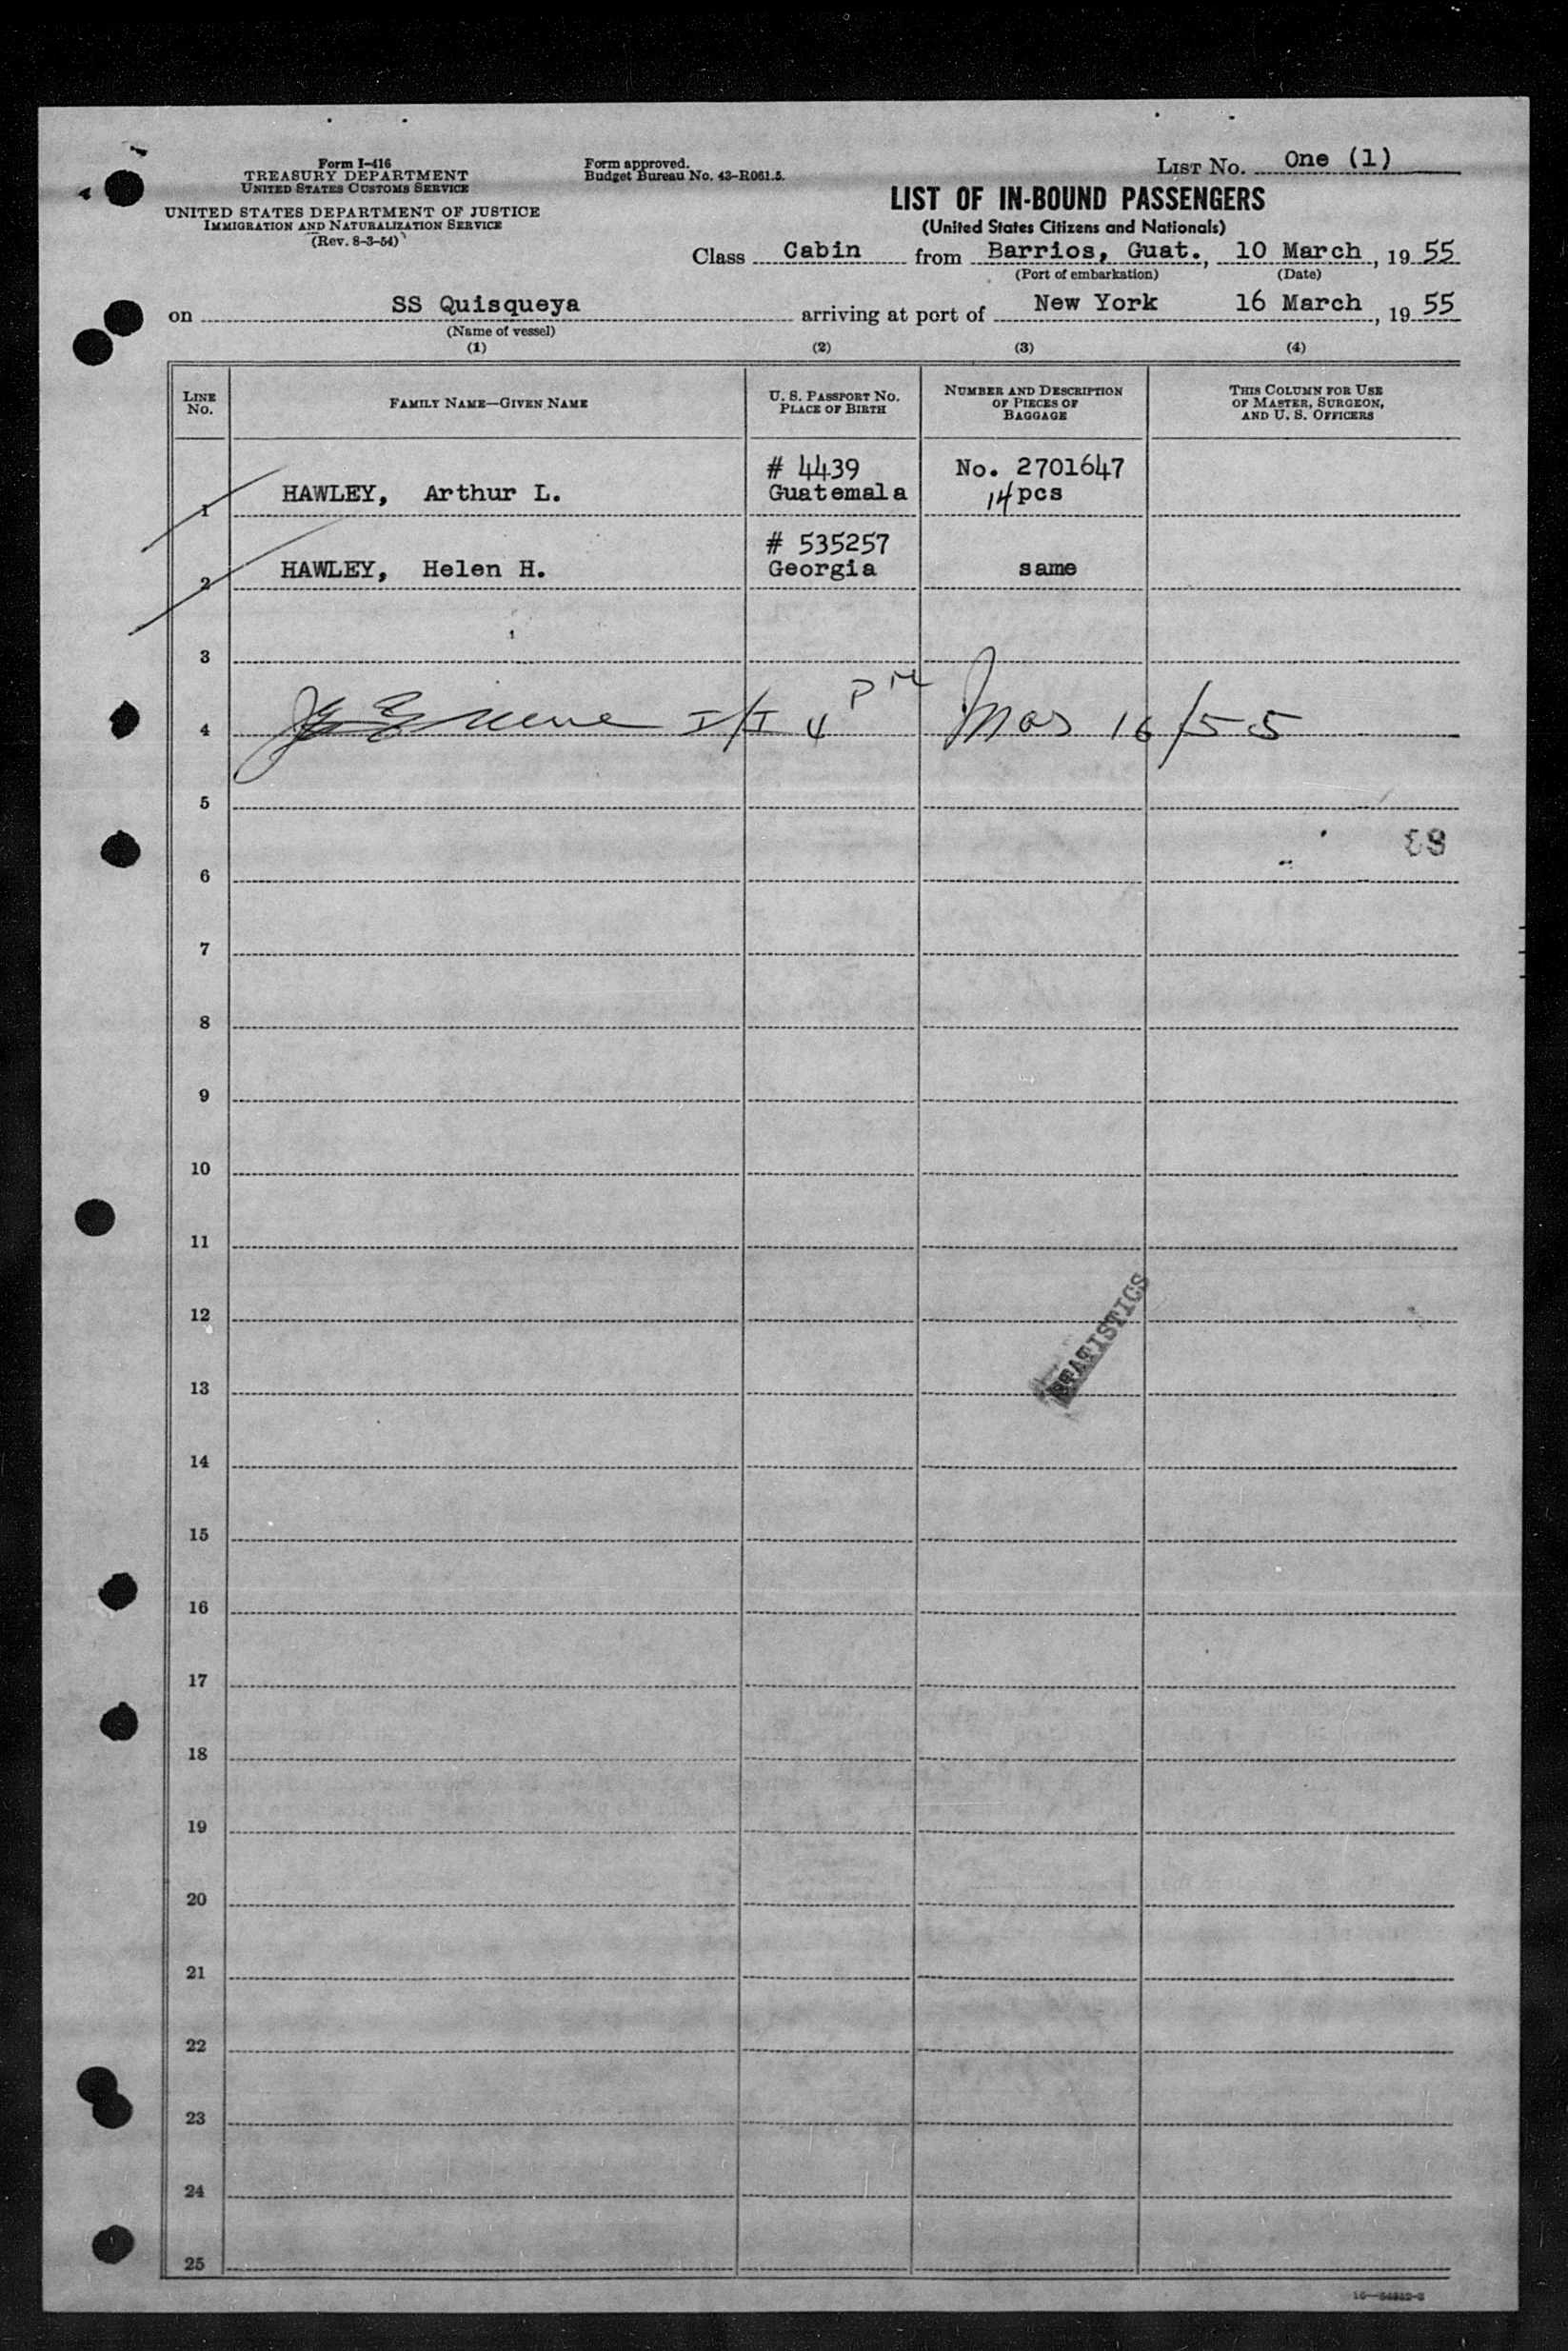 Form I-416
TREASURY DEPARTMENT
UNITED STATES CUSTOMS SERVICE
UNITED STATES DEPARTMENT OF JUSTICE
IMMIGRATION AND NATURALIZATION SERVICE
(Rev. 8-3-54)
Form approved.
Budget Bureau No. 43-R061.5.
LIST No. One (1)
LIST OF IN-BOUND PASSENGERS
(United States Citizens and Nationals)
Class Cabin from Barrios, Guat., 10 March, 1955
(Port of embarkation) (Date)
on SS Quisqueya arriving at port of New York 16 March, 1955
(Name of vessel)
(1) (2) (3) (4)
LINE No. FAMILY NAME—GIVEN NAME U. S. PASSPORT NO. PLACE OF BIRTH NUMBER AND DESCRIPTION OF PIECES OF BAGGAGE THIS COLUMN FOR USE OF MASTER, SURGEON, AND U. S. OFFICERS
# 4439 No. 2701647
1 HAWLEY, Arthur L. Guatemala 14 pcs
# 535257
2 HAWLEY, Helen H. Georgia same
3
4 I/I 4 PM Mar 16/55
5
6
7
8
9
10
11
12
STATISTICS
13
14
15
16
17
18
19
20
21
22
23
24
25